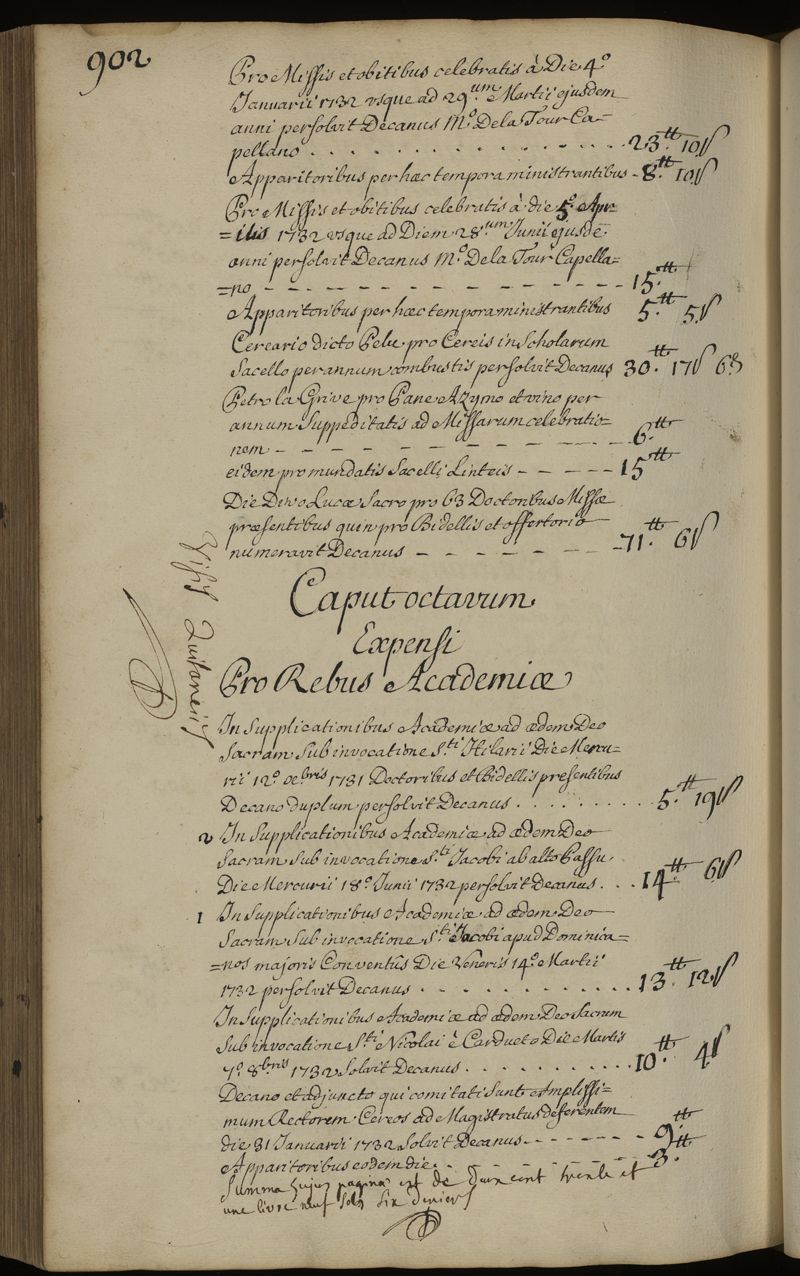 902
Pro Missis et obitibus celebratis à Die 4.º
Januarii 1732 usque ad 29.um Martii ejusdem
anni persolvit Decanus M.º De la Tour Ca=
pellano . . . . . . . . . . . . . . 23.tt 10ſ
Apparitoribus per hæc tempora ministrantibus - 8.tt 10ſ
Pro Missis et obitibus celebratis à die 5.º Apr=
=ilis 1732 usque ad Diem 28.um Junii ejusdē
anni persolvit Decanus M.º De la Tour Capella=
=no - - - - - - - - - - - - - 15.tt
Apparitoribus per hæc tempora ministrantibus 5.tt 5ſ
Cereario dicto Pelu pro Cereis in Scholarum
Sacello per annum combustis persolvit Decanus 30.tt 17ſ 6δ
Petro la Grive pro Pane Azymo et vino per
annum Suppeditatis ad Missarum celebratio=
nem - - - - - - - - - - - - - 6.tt
eidem pro mundatis Sacelli Linteis - - - - - 15tt
Die Divo Lucæ Sacro pro 63 Doctoribus Missæ
præsentibus quin pro Bidellis et offertorio
numeravit Decanus - - - - - - - - 71.tt 6ſ
Caput octavum
Expensi
Pro Rebus Academiæ
In Supplicationibus Academiæ ad ædem Deo
Sacram Sub invocatione S.ti Hilarii Die Mercu=
rii 12.º Xbris 1731 Doctoribus et Bidellis presentibus
Decano duplum persolvit Decanus . . . . . . . . 5.tt 19ſ
2 In Supplicationibus Academiæ ad ædem Deo
Sacram Sub invocatione S.ti Jacobi ab alto Passu,
Die Mercurii 18.º Junii 1732 persolvit Decanus. . . 14.tt 6ſ
1 In Supplicationibus Academiæ ad ædem Deo
Sacram Sub invocatione S.ti Jacobi apud Dominica=
=nos majoris Conventûs Die Veneris 14.º Martii
1732 persolvit Decanus . . . . . . . . . . . . 13.tt 12ſ
In Supplicationibus Academiæ ad ædem Deo Sacram
Sub invocatione S.ti Nicolai è Cardueto Die Martis
7.º 8bris 1732 Solvit Decanus . . . . . . . . . . 10.tt 4ſ
Decano et adjuncto qui comitati sunt Amplissi=
mum Rectorem Cereos ad Magistratus deferentem
die 31 Januarii 1732 Solvit Decanus - - - - - - 9.tt
Apparitoribus eodem die. - - - - - - - - 3.tt
Summa hujus paginæ est de Deux cent trente et
une livre neuf sols six deniers